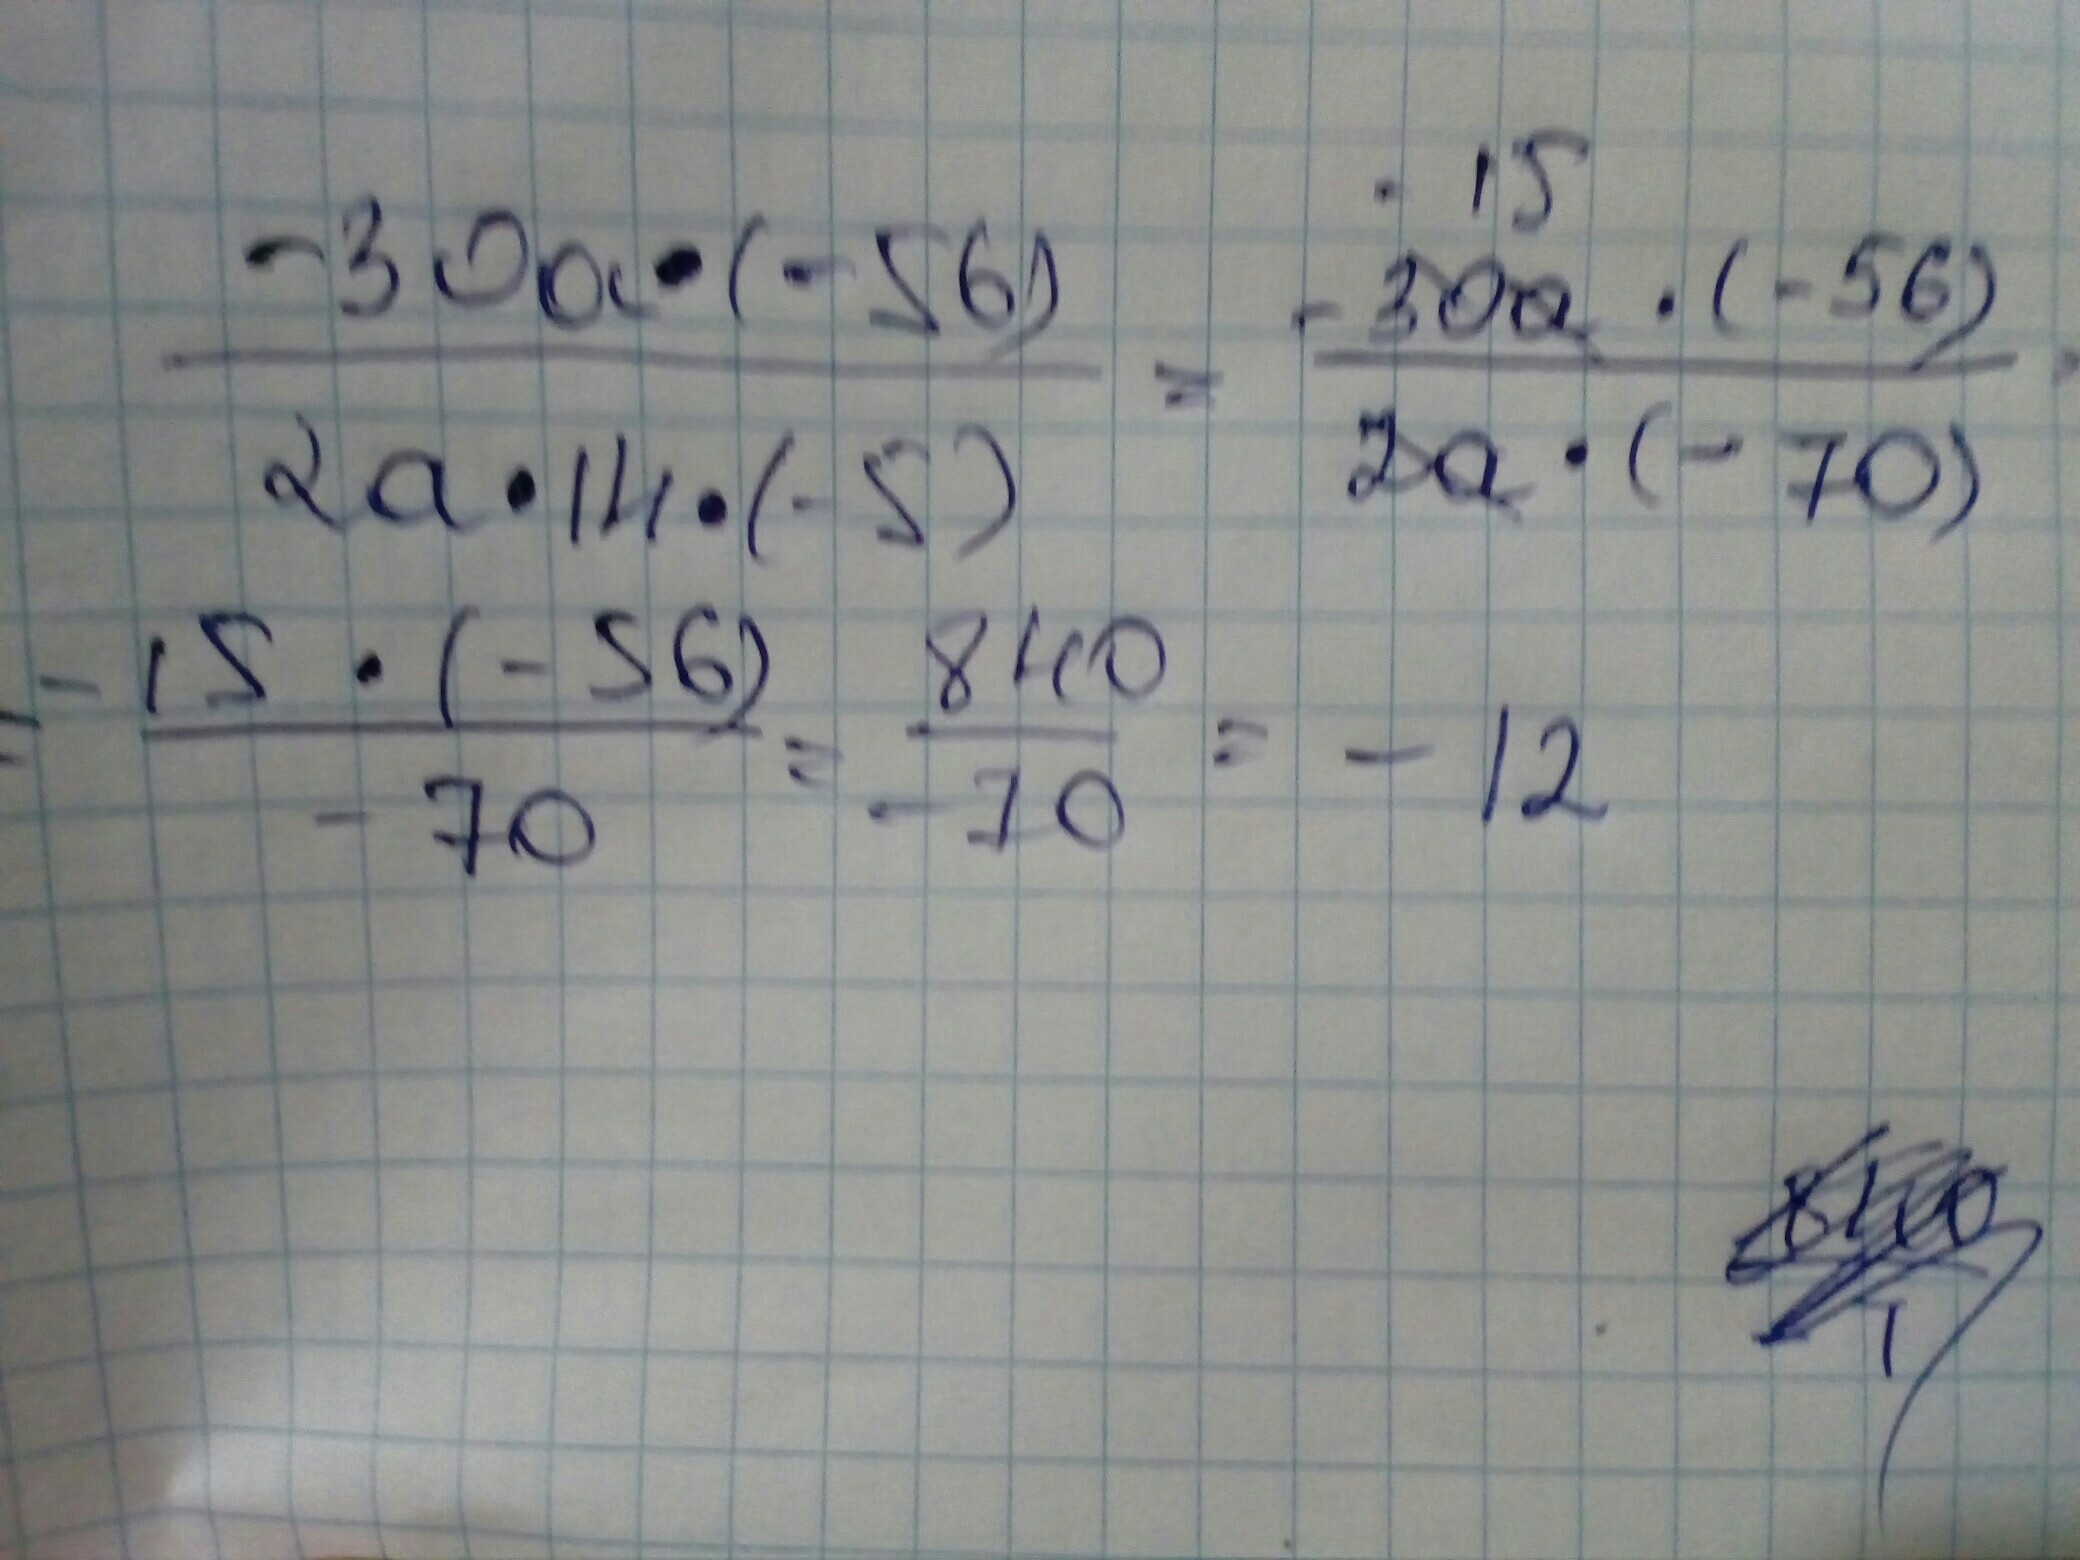 -30a•(-56)
2a•14•(-5)
=
- 15
-30a • (-56)
2a • (-70)
=
= -15 • (-56)
- 70
=
840
-70
= - 12
840
1